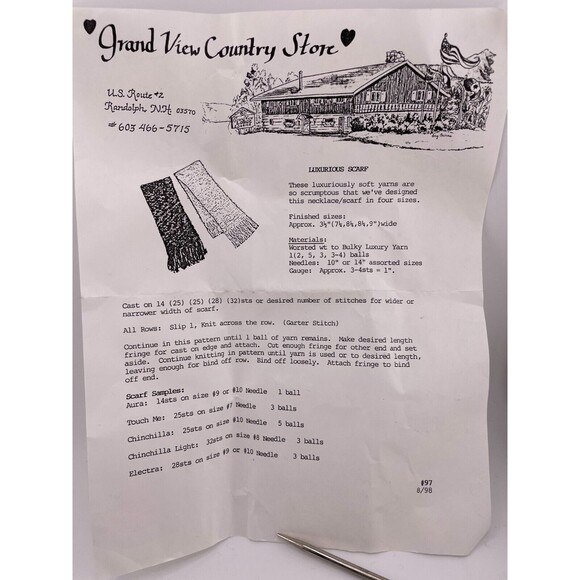 Grand View Country Store
U.S. Route #2
Randolph, N.H. 03570
# 603 466-5715
LUXURIOUS SCARF
These luxuriously soft yarns are
so scrumptous that we've designed
this necklace/scarf in four sizes.
Finished sizes:
Approx. 3½"(7¼,8¼,8¼,9")wide
Materials:
Worsted wt to Bulky Luxury Yarn
1(2, 5, 3, 3-4) balls
Needles: 10" or 14" assorted sizes
Gauge: Approx. 3-4sts = 1".
Cast on 14 (25) (25) (28) (32)sts or desired number of stitches for wider or
narrower width of scarf.
All Rows: Slip 1, Knit across the row. (Garter Stitch)
Continue in this pattern until 1 ball of yarn remains. Make desired length
fringe for cast on edge and attach. Cut enough fringe for other end and set
aside. Continue knitting in pattern until yarn is used or to desired length,
leaving enough for bind off row. Bind off loosely. Attach fringe to bind
off end.
Scarf Samples:
Aura: 14sts on size #9 or #10 Needle 1 ball
Touch Me: 25sts on size #7 Needle 3 balls
Chinchilla: 25sts on size #10 Needle 5 balls
Chinchilla Light: 32sts on size #8 Needle 3 balls
Electra: 28sts on size #9 or #10 Needle 3 balls
#97
8/98